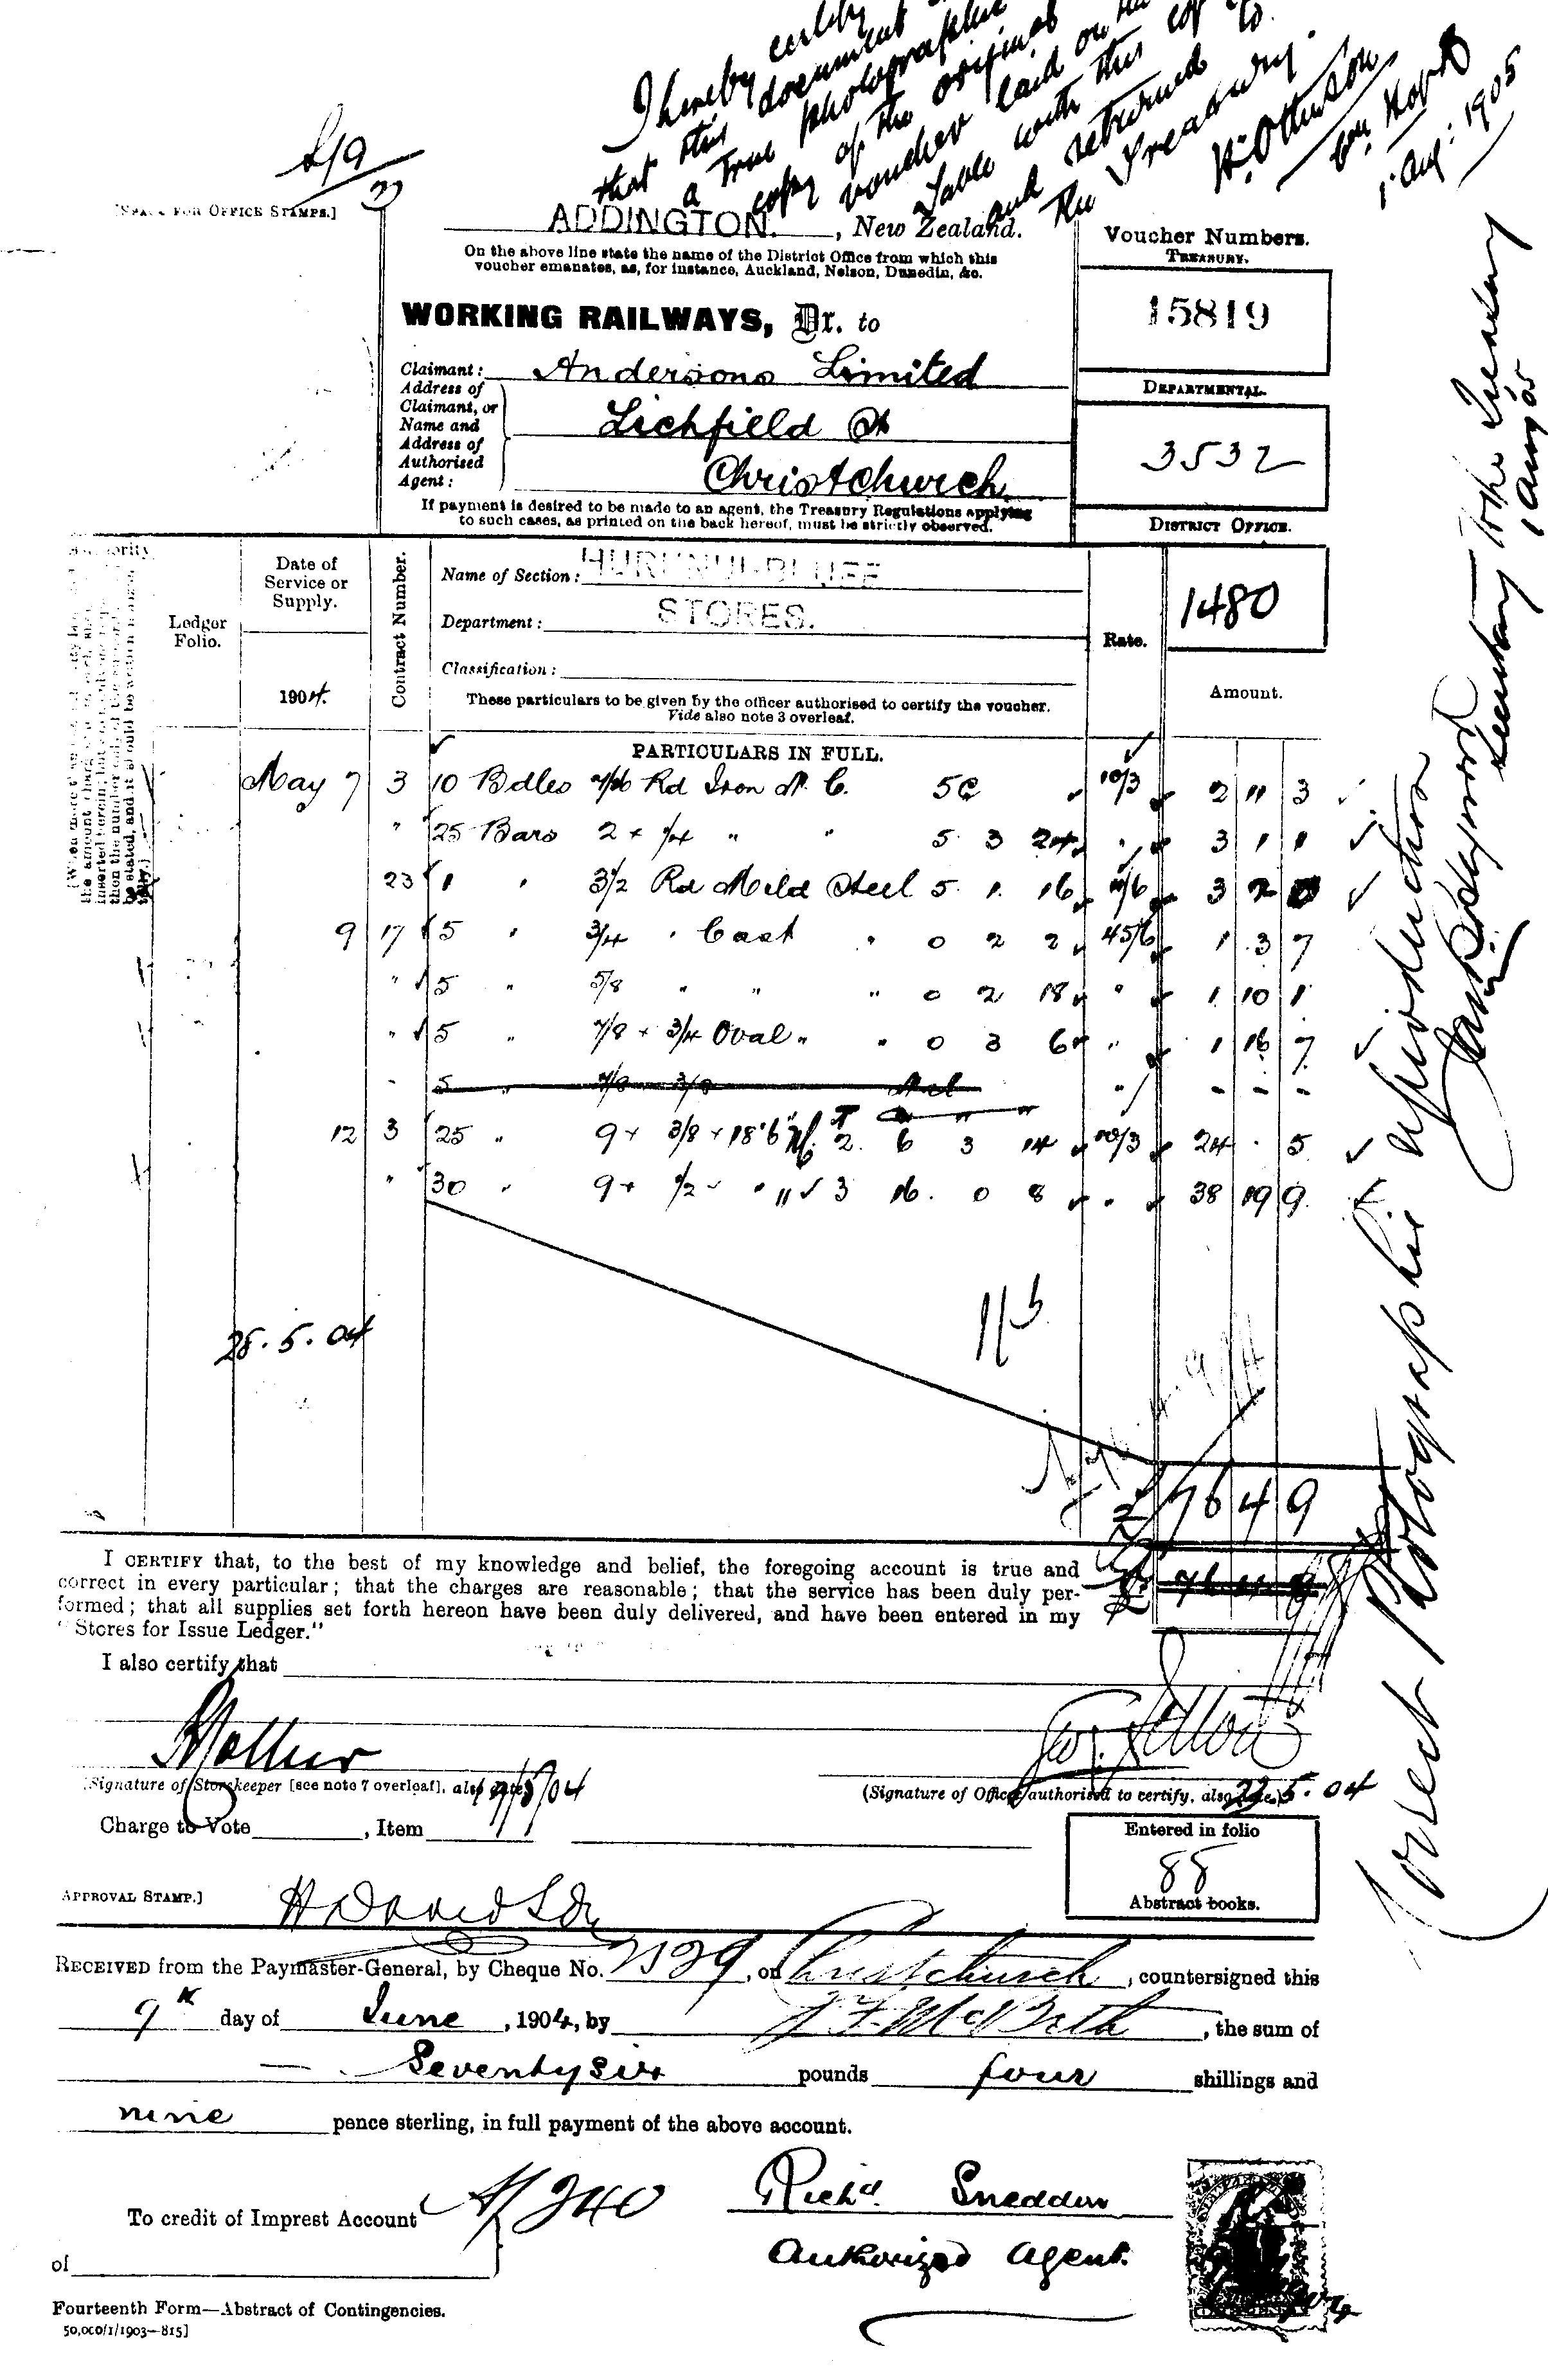 I hereby certify
that this document
a true photographic
copy of the original
voucher laid on the
Table with this
and returned to
the Treasury.
1 Aug: 1905
[SPACE FOR OFFICE STAMPS.]
ADDINGTON. , New Zealand.
On the above line state the name of the District Office from which this
voucher emanates, as, for instance, Auckland, Nelson, Dunedin, &c.
Voucher Numbers.
TREASURY.
15819
WORKING RAILWAYS, Dr. to
Claimant: Andersons Limited
Address of
Claimant, or
Name and
Address of
Authorised
Agent:
Lichfield St
Christchurch
DEPARTMENTAL.
3532
If payment is desired to be made to an agent, the Treasury Regulations applying
to such cases, as printed on the back hereof, must be strictly observed.
DISTRICT OFFICE.
1480
Ledger
Folio.
Date of
Service or
Supply.
1904.
Contract Number.
Name of Section: HURUNUI-BLUFF
Department: STORES.
Classification:
These particulars to be given by the officer authorised to certify the voucher.
Vide also note 3 overleaf.
Rate.
Amount.
PARTICULARS IN FULL.
May 7 3 10 Bdles 7/16 Rd Iron N. C. 5C 10/3 2 11 3
" 25 Bars 2 + 1/4 " " 5 3 24 " 3 1 1
23 1 " 3 1/2 Rd Mild Steel 5. 1. 16 11/6 3 2 0
9 17 5 " 3/4 " Cast " 0 2 2 45/6 1 3 7
" 5 " 5/8 " " " 0 2 18 " 1 10 1
" 5 " 7/8 + 3/4 Oval " " 0 3 6 " 1 16 7
" 5 " 7/8 3/8 " - - -
12 3 25 " 9 + 3/8 + 18'6" 2. 6 3 14 10/3 24 . 5
" 30 " 9 + 1/2 " " 11 3 16. 0 8 " 38 19 9
25.5.04
£ 76 4 9
I CERTIFY that, to the best of my knowledge and belief, the foregoing account is true and
correct in every particular; that the charges are reasonable; that the service has been duly per-
formed; that all supplies set forth hereon have been duly delivered, and have been entered in my
"Stores for Issue Ledger."
I also certify that
(Signature of Storekeeper [see note 7 overleaf], also date.)
(Signature of Officer authorised to certify, also date.) 5.04
Charge to Vote , Item
Entered in folio
88
Abstract books.
APPROVAL STAMP.]
RECEIVED from the Paymaster-General, by Cheque No. , on Christchurch , countersigned this
9th day of June , 1904, by , the sum of
Seventy six pounds four shillings and
nine pence sterling, in full payment of the above account.
To credit of Imprest Account
of
Richd. Sneddon
Authorized Agent.
Fourteenth Form—Abstract of Contingencies.
50,000/1/1903—815]
Correct Photographic reproduction
Secretary to the Treasury
1 Aug 05